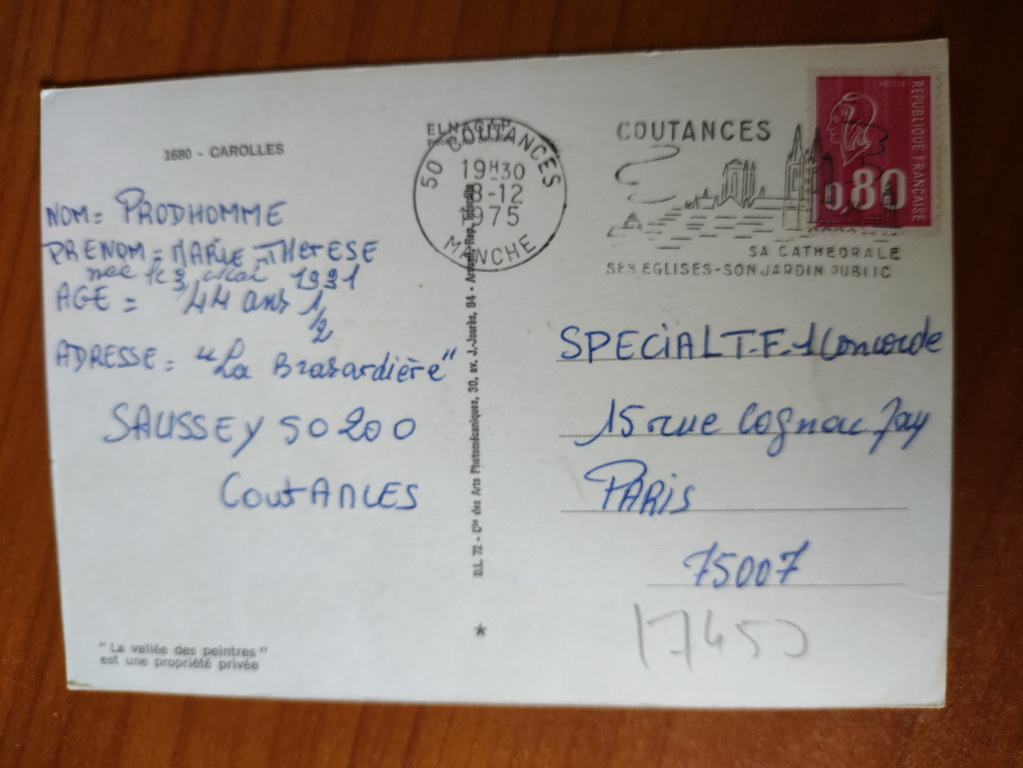 1680 - CAROLLES
NOM = PRODHOMME
PRENOM = MARIE-THERESE
née le 3 Mai 1931
AGE = 44 ans 1/2
ADRESSE = "La Brasardière"
SAUSSEY 50200
COUTANCES
"La vallée des peintres"
est une propriété privée
D.L. 72 - Cie des Arts Photomécaniques, 30, av. J.-Jaurès, 94 -
50 COUTANCES
19H30
8-12
1975
MANCHE
COUTANCES
SA CATHEDRALE
SES EGLISES - SON JARDIN PUBLIC
POSTES
REPUBLIQUE FRANÇAISE
0,80
SPECIAL T.F.1 Concorde
15 rue Cognac Jay
PARIS
75007
17453